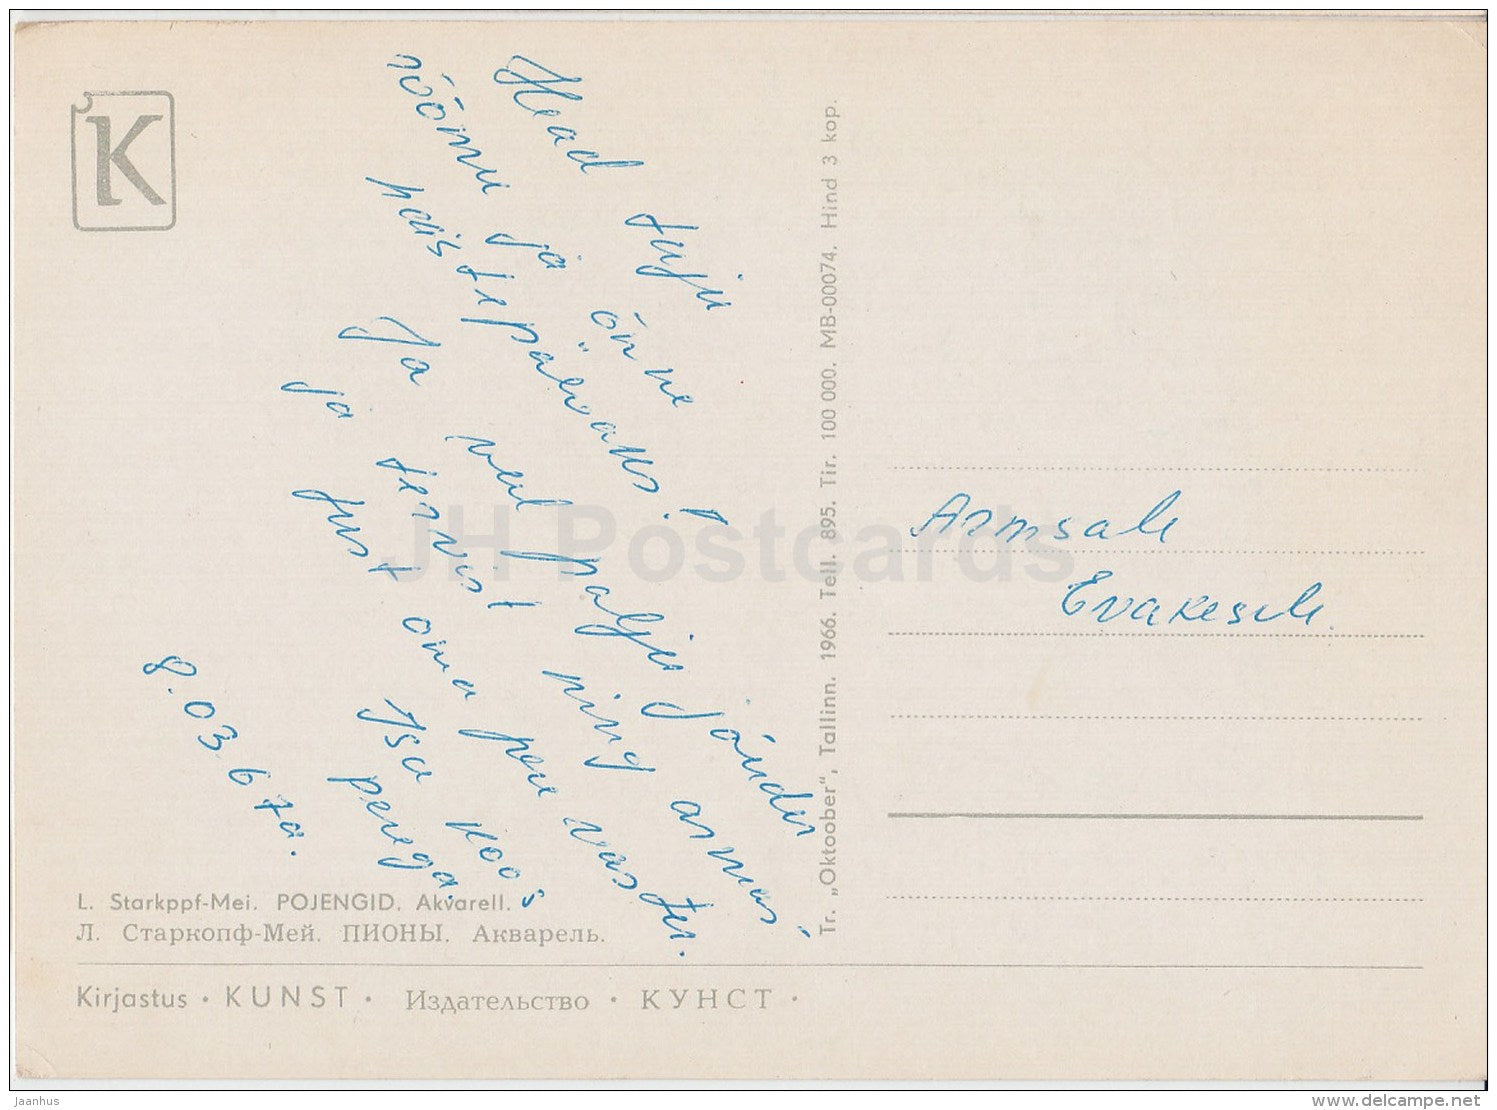 K
Head tuju
rõõmu ja õnne
naistepäevaks!
Ja veel palju jõudu
ja tervist ning armas
just oma pere vastu.
Isa koos
perega.
8.03.67a.
Armsale
Evakesele.
Tr. „Oktoober", Tallinn. 1966. Tell. 895. Tir. 100 000. MB-00074. Hind 3 kop.
L. Starkppf-Mei. POJENGID. Akvarell.
Л. Старкопф-Мей. ПИОНЫ. Акварель.
Kirjastus · KUNST · Издательство · КУНСТ ·
JH Postcards
Jaanhus
delcampe.net